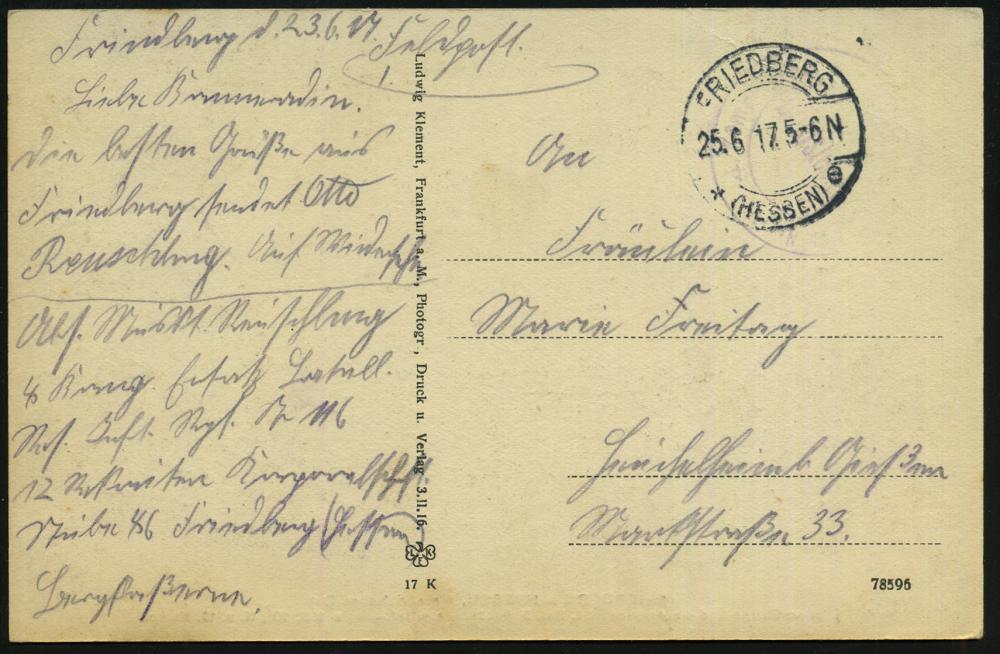 Friedberg d. 23.6.17.
Liebe Kameradin.
Die besten Grüße aus
Friedberg sendet Otto
Reuschling. Auf Wiedersehn
Abs. Muskt. Reuschling
4 Komp. Ersatz Bataill.
Res. Inft. Rgt. Nr 116
12 Rekruten Korporalschft.
Stube 46 Friedberg (Hessen)
Bergkaßerne.
Ludwig Klement, Frankfurt a. M., Photogr., Druck u. Verlag 3.11.16.
17 K
Feldpost.
1.
FRIEDBERG
25.6 17.5-6N
* (HESSEN) e
An
Fräulein
Marie Freitag
Heuchelheim b Gießen
Marktstraße 33.
78596